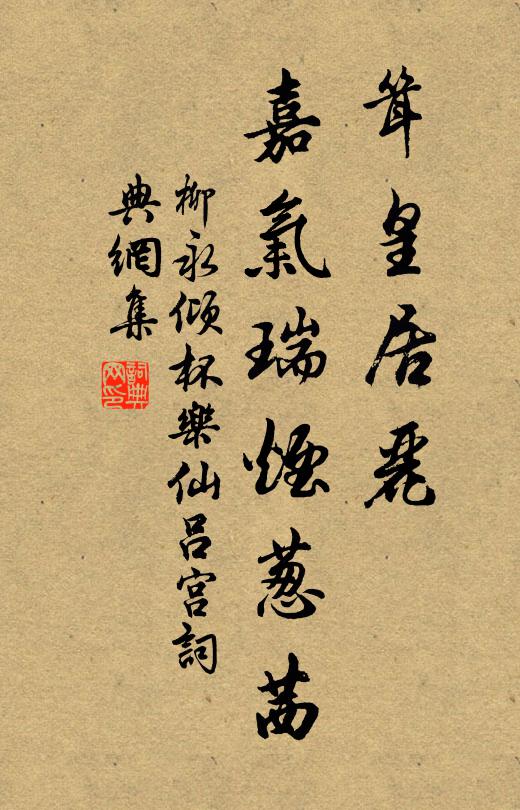 耸皇居麗
嘉氣瑞煙葱茜
柳永傾杯樂仙呂宮詞
典網集
詞典
网印